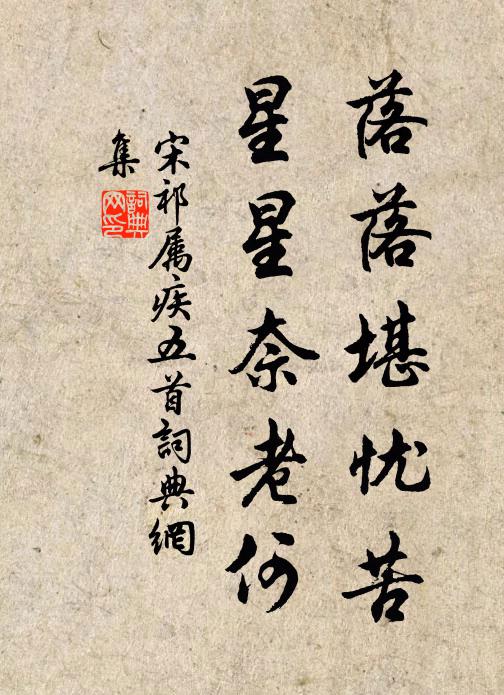 落落堪忧苦
星星奈老何
宋祁属疾五首词典網
集
詞典
网印